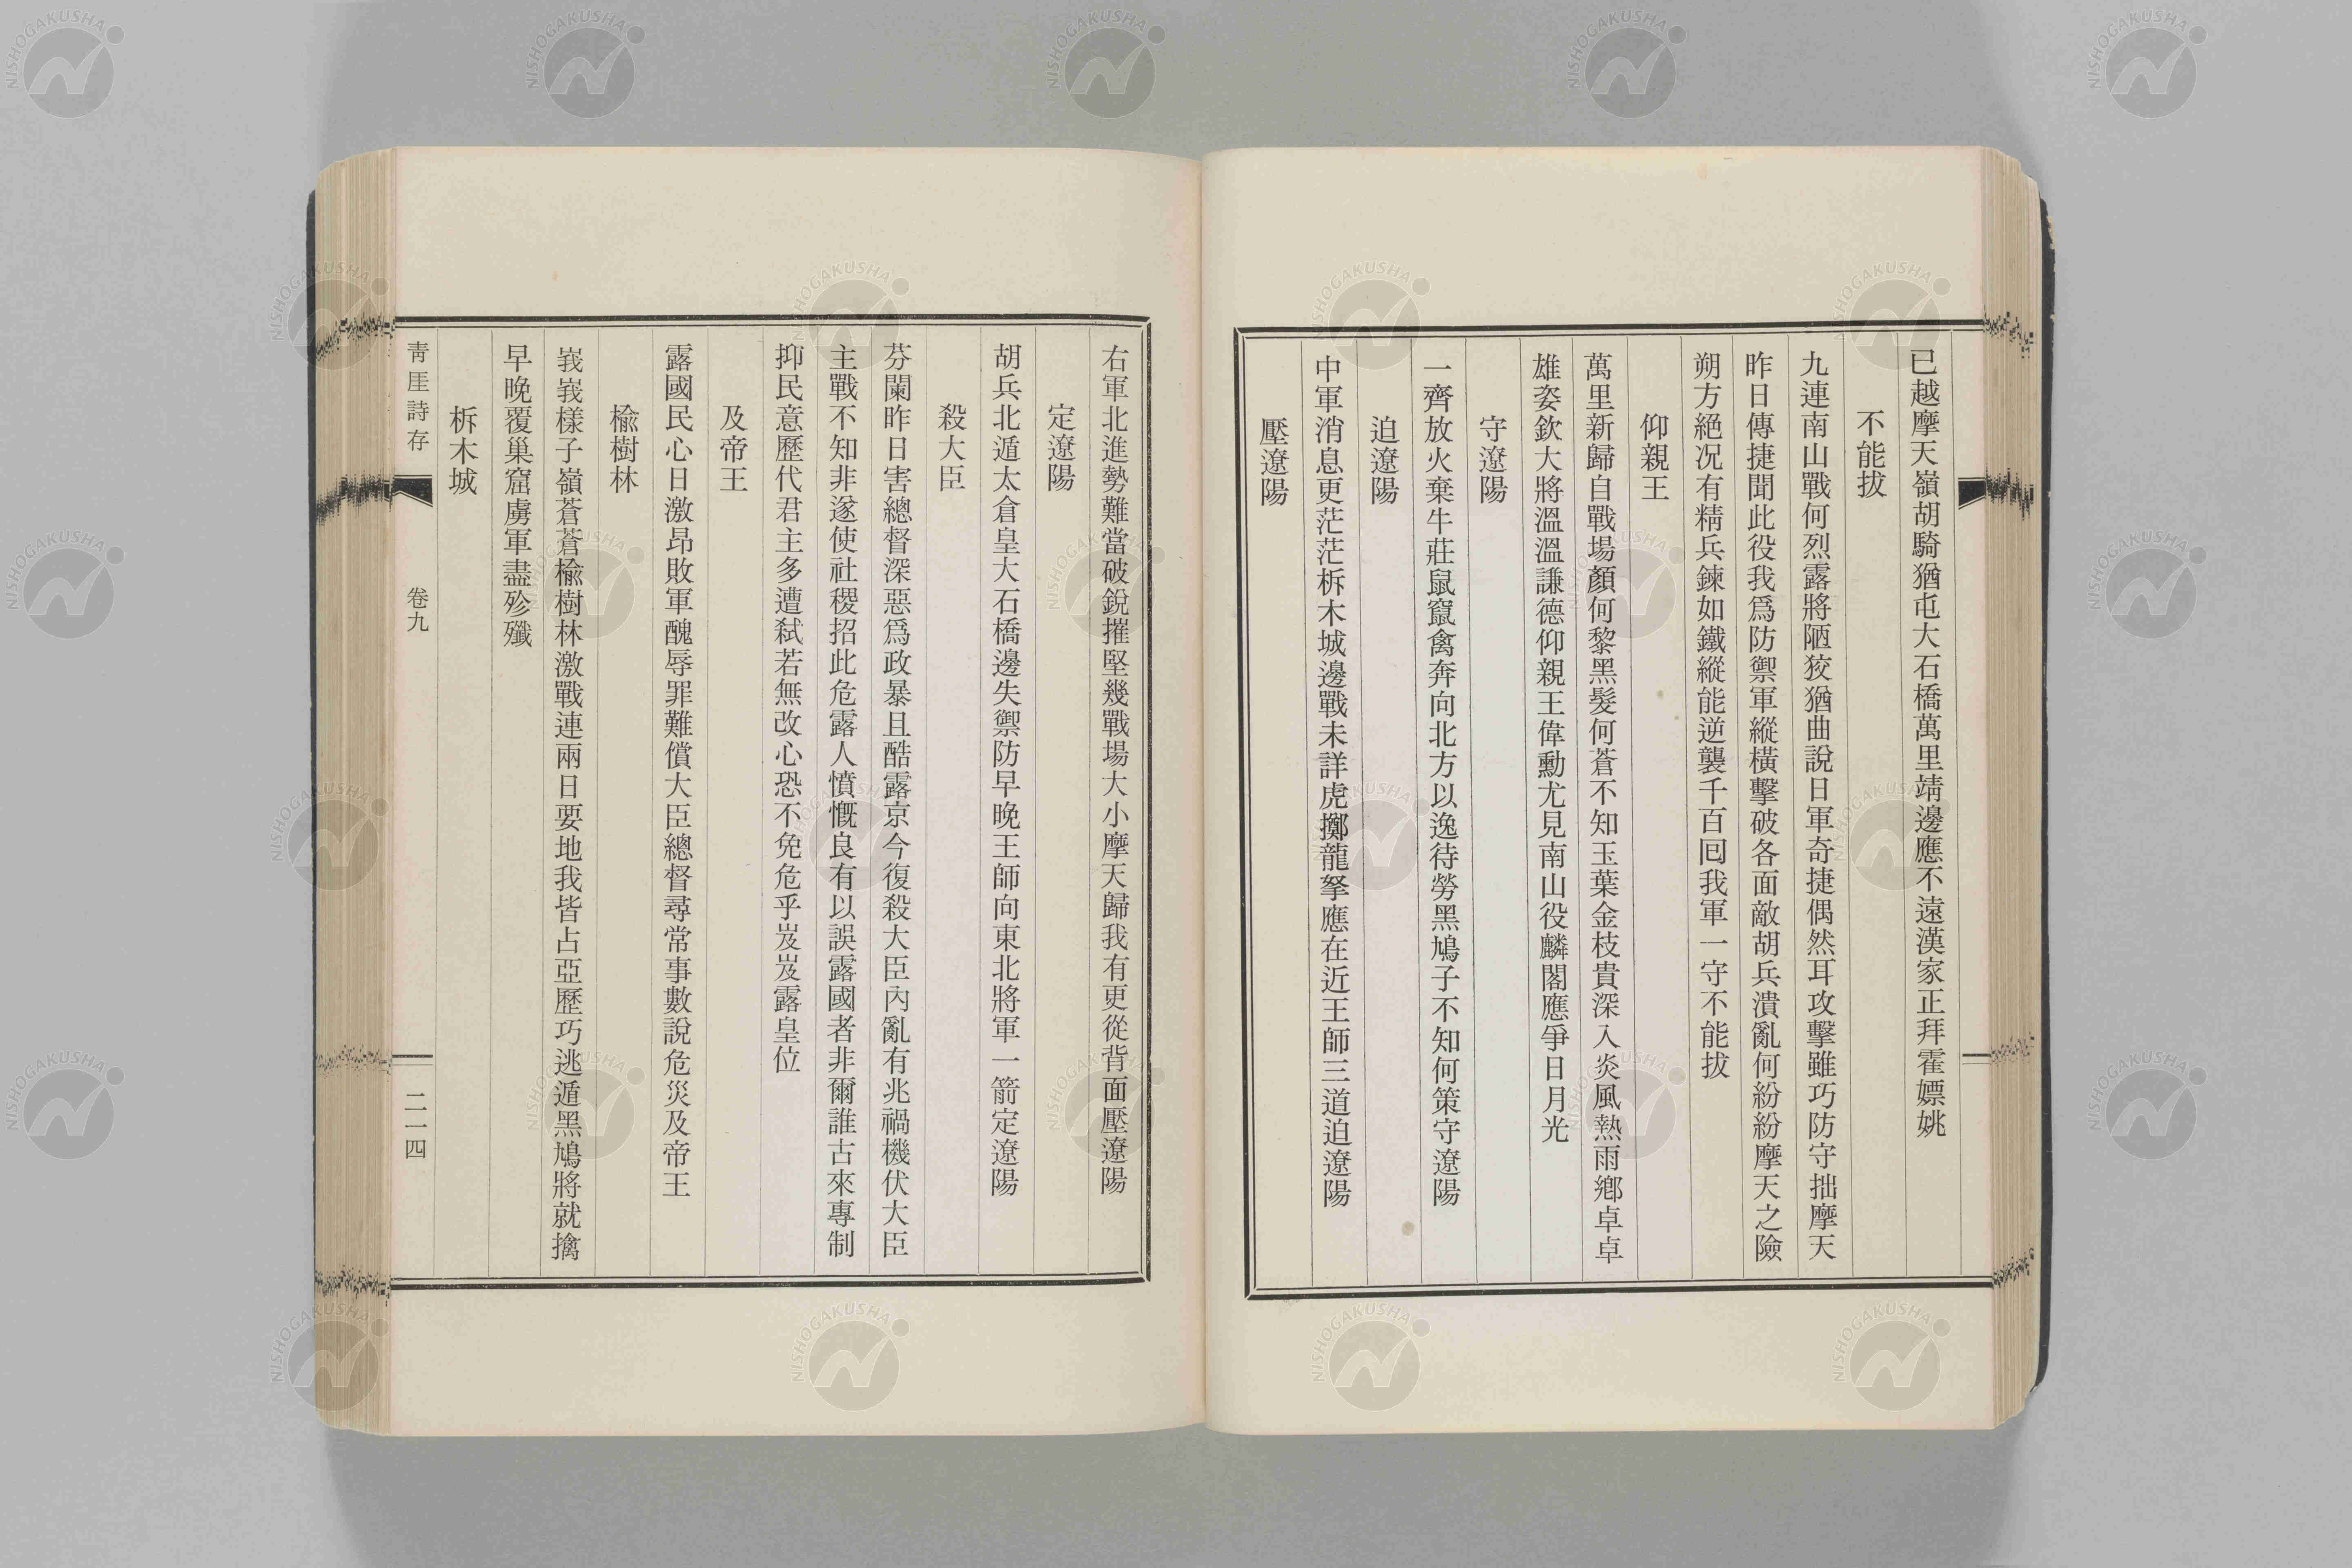 已越摩天嶺胡騎猶屯大石橋萬里靖邊應不遠漢家正拜霍嫖姚
不能拔
九連南山戰何烈露將陋狡猶曲說日軍奇捷偶然耳攻擊雖巧防守拙摩天
昨日傳捷聞此役我爲防禦軍縱橫擊破各面敵胡兵潰亂何紛紛摩天之險
朔方絕況有精兵鍊如鐵縱能逆襲千百回我軍一守不能拔
仰親王
萬里新歸自戰場顏何黎黑髮何蒼不知玉葉金枝貴深入炎風熱雨鄕卓卓
雄姿欽大將溫溫謙德仰親王偉勳尤見南山役麟閣應爭日月光
守遼陽
一齊放火棄牛莊鼠竄禽奔向北方以逸待勞黑鳩子不知何策守遼陽
迫遼陽
中軍消息更茫茫柝木城邊戰未詳虎擲龍拏應在近王師三道迫遼陽
壓遼陽
右軍北進勢難當破銳摧堅幾戰場大小摩天歸我有更從背面壓遼陽
定遼陽
胡兵北遁太倉皇大石橋邊失禦防早晚王師向東北將軍一箭定遼陽
殺大臣
芬蘭昨日害總督深惡爲政暴且酷露京今復殺大臣內亂有兆禍機伏大臣
主戰不知非遂使社稷招此危露人憤慨良有以誤露國者非爾誰古來專制
抑民意歷代君主多遭弑若無改心恐不免危乎岌岌露皇位
及帝王
露國民心日激昂敗軍醜辱罪難償大臣總督尋常事數說危災及帝王
楡樹林
峩峩樣子嶺蒼蒼楡樹林激戰連兩日要地我皆占亞歷巧逃遁黑鳩將就擒
早晚覆巢窟虜軍盡殄殲
柝木城
靑厓詩存
卷九
二一四
NISHOGAKUSHA